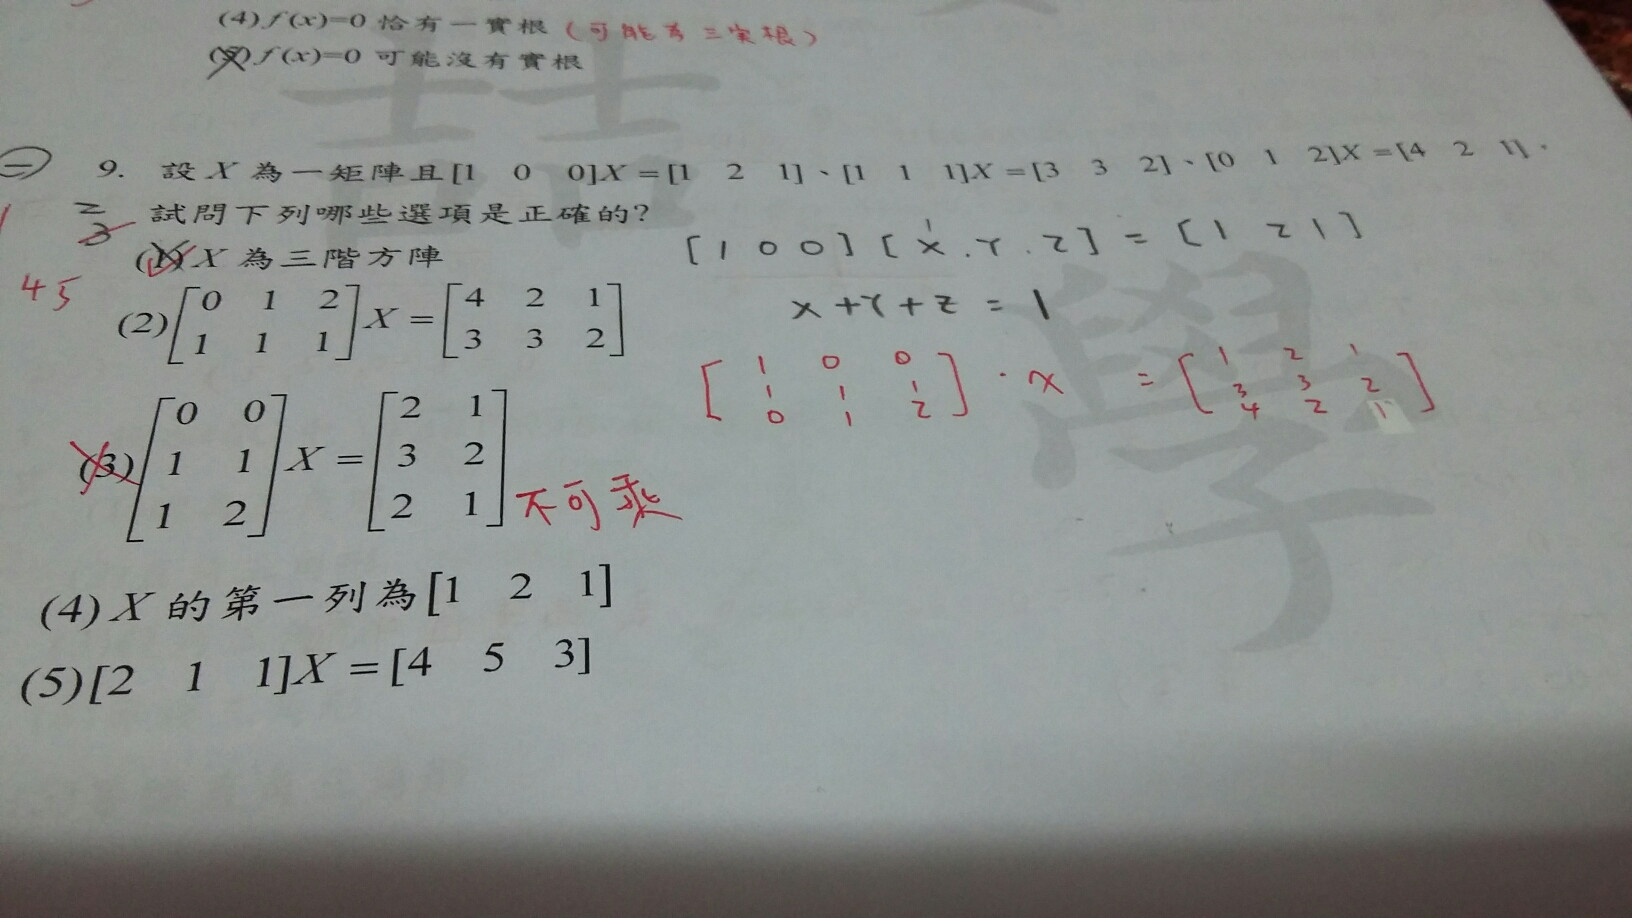 (4) f(x)=0 恰有一實根 (可能為三实根)
(5) f(x)=0 可能沒有實根
㊁ 9. 設 X 為一矩陣且[1 0 0]X=[1 2 1]、[1 1 1]X=[3 3 2]、[0 1 2]X=[4 2 1].
試問下列哪些選項是正確的?
(1) X 為三階方陣
[1 0 0] [X.Y.Z] = [1 2 1]
45
(2) [0 1 2 X = [4 2 1
1 1 1] 3 3 2]
X+Y+Z = 1
[1 0 0 · x = [1 2 1
1 1 1 3 3 2
0 1 2] 4 2 1]
(3) [0 0 X = [2 1
1 1 3 2
1 2] 2 1] 不可乘
(4) X 的第一列為[1 2 1]
(5) [2 1 1]X=[4 5 3]
學